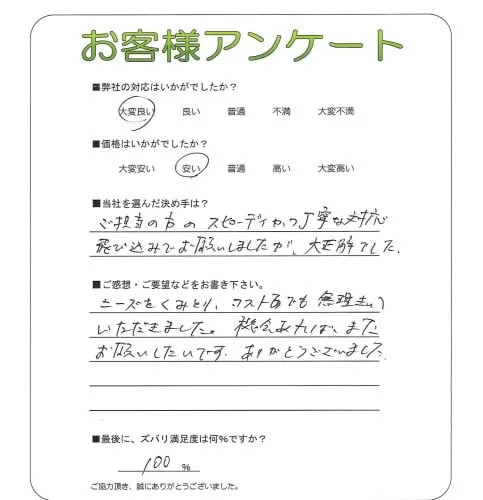 お客様アンケート
■弊社の対応はいかがでしたか?
大変良い 良い 普通 不満 大変不満
■価格はいかがでしたか?
大変安い 安い 普通 高い 大変高い
■当社を選んだ決め手は?
ご担当の方のスピーディかつ丁寧な対応
飛び込みでお願いしましたが、大正解でした。
■ご感想・ご要望などをお書き下さい。
ニーズをくみとり、コスト面でも無理きいて
いただきました。機会あれば、また
お願いしたいです。ありがとうございました。
■最後に、ズバリ満足度は何%ですか?
100 %
ご協力頂き、誠にありがとうございました。